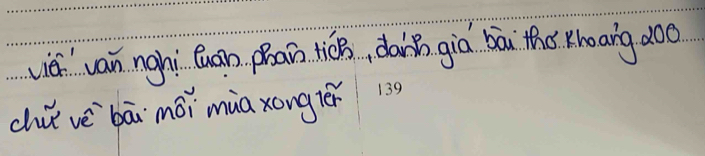 viết văn nghị luận phân tích, đánh giá bài thơ khoảng 200
chữ về bài mỗi mùa xong tết
139